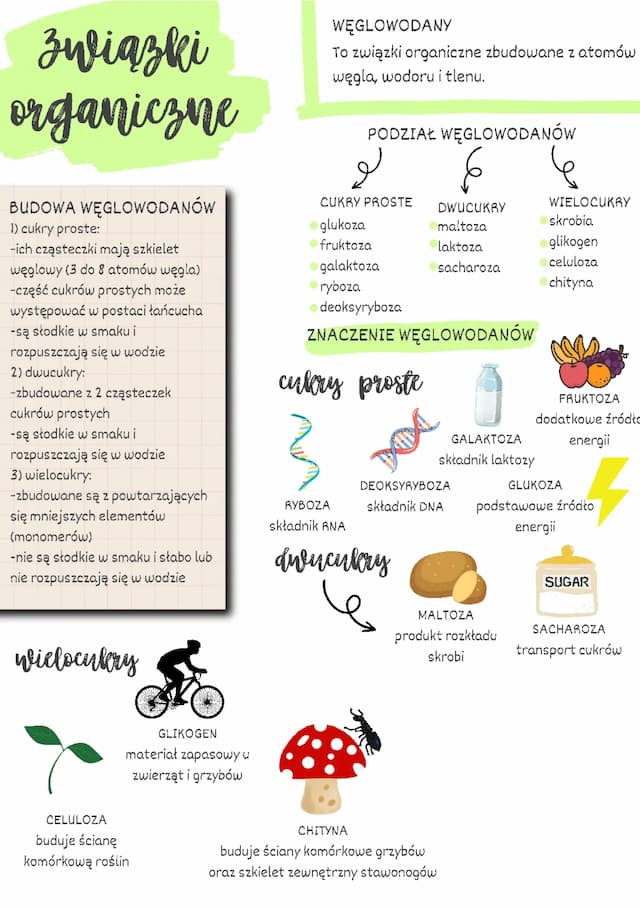 związki
organiczne
WĘGLOWODANY
To związki organiczne zbudowane z atomów
węgla, wodoru i tlenu.
PODZIAŁ WĘGLOWODANÓW
CUKRY PROSTE
glukoza
fruktoza
galaktoza
ryboza
deoksyryboza
DWUCUKRY
maltoza
laktoza
sacharoza
WIELOCUKRY
skrobia
glikogen
celuloza
chityna
BUDOWA WĘGLOWODANÓW
1) cukry proste:
-ich cząsteczki mają szkielet
węglowy (3 do 8 atomów węgla)
-część cukrów prostych może
występować w postaci łańcucha
-są słodkie w smaku i
rozpuszczają się w wodzie
2) dwucukry:
-zbudowane z 2 cząsteczek
cukrów prostych
-są słodkie w smaku i
rozpuszczają się w wodzie
3) wielocukry:
-zbudowane są z powtarzających
się mniejszych elementów
(monomerów)
-nie są słodkie w smaku i słabo lub
nie rozpuszczają się w wodzie
ZNACZENIE WĘGLOWODANÓW
cukry proste
RYBOZA
składnik RNA
DEOKSYRYBOZA
składnik DNA
GALAKTOZA
składnik laktozy
FRUKTOZA
dodatkowe źródło
energii
GLUKOZA
podstawowe źródło
energii
dwucukry
MALTOZA
produkt rozkładu
skrobi
SUGAR
SACHAROZA
transport cukrów
wielocukry
GLIKOGEN
materiał zapasowy u
zwierząt i grzybów
CELULOZA
buduje ścianę
komórkową roślin
CHITYNA
buduje ściany komórkowe grzybów
oraz szkielet zewnętrzny stawonogów